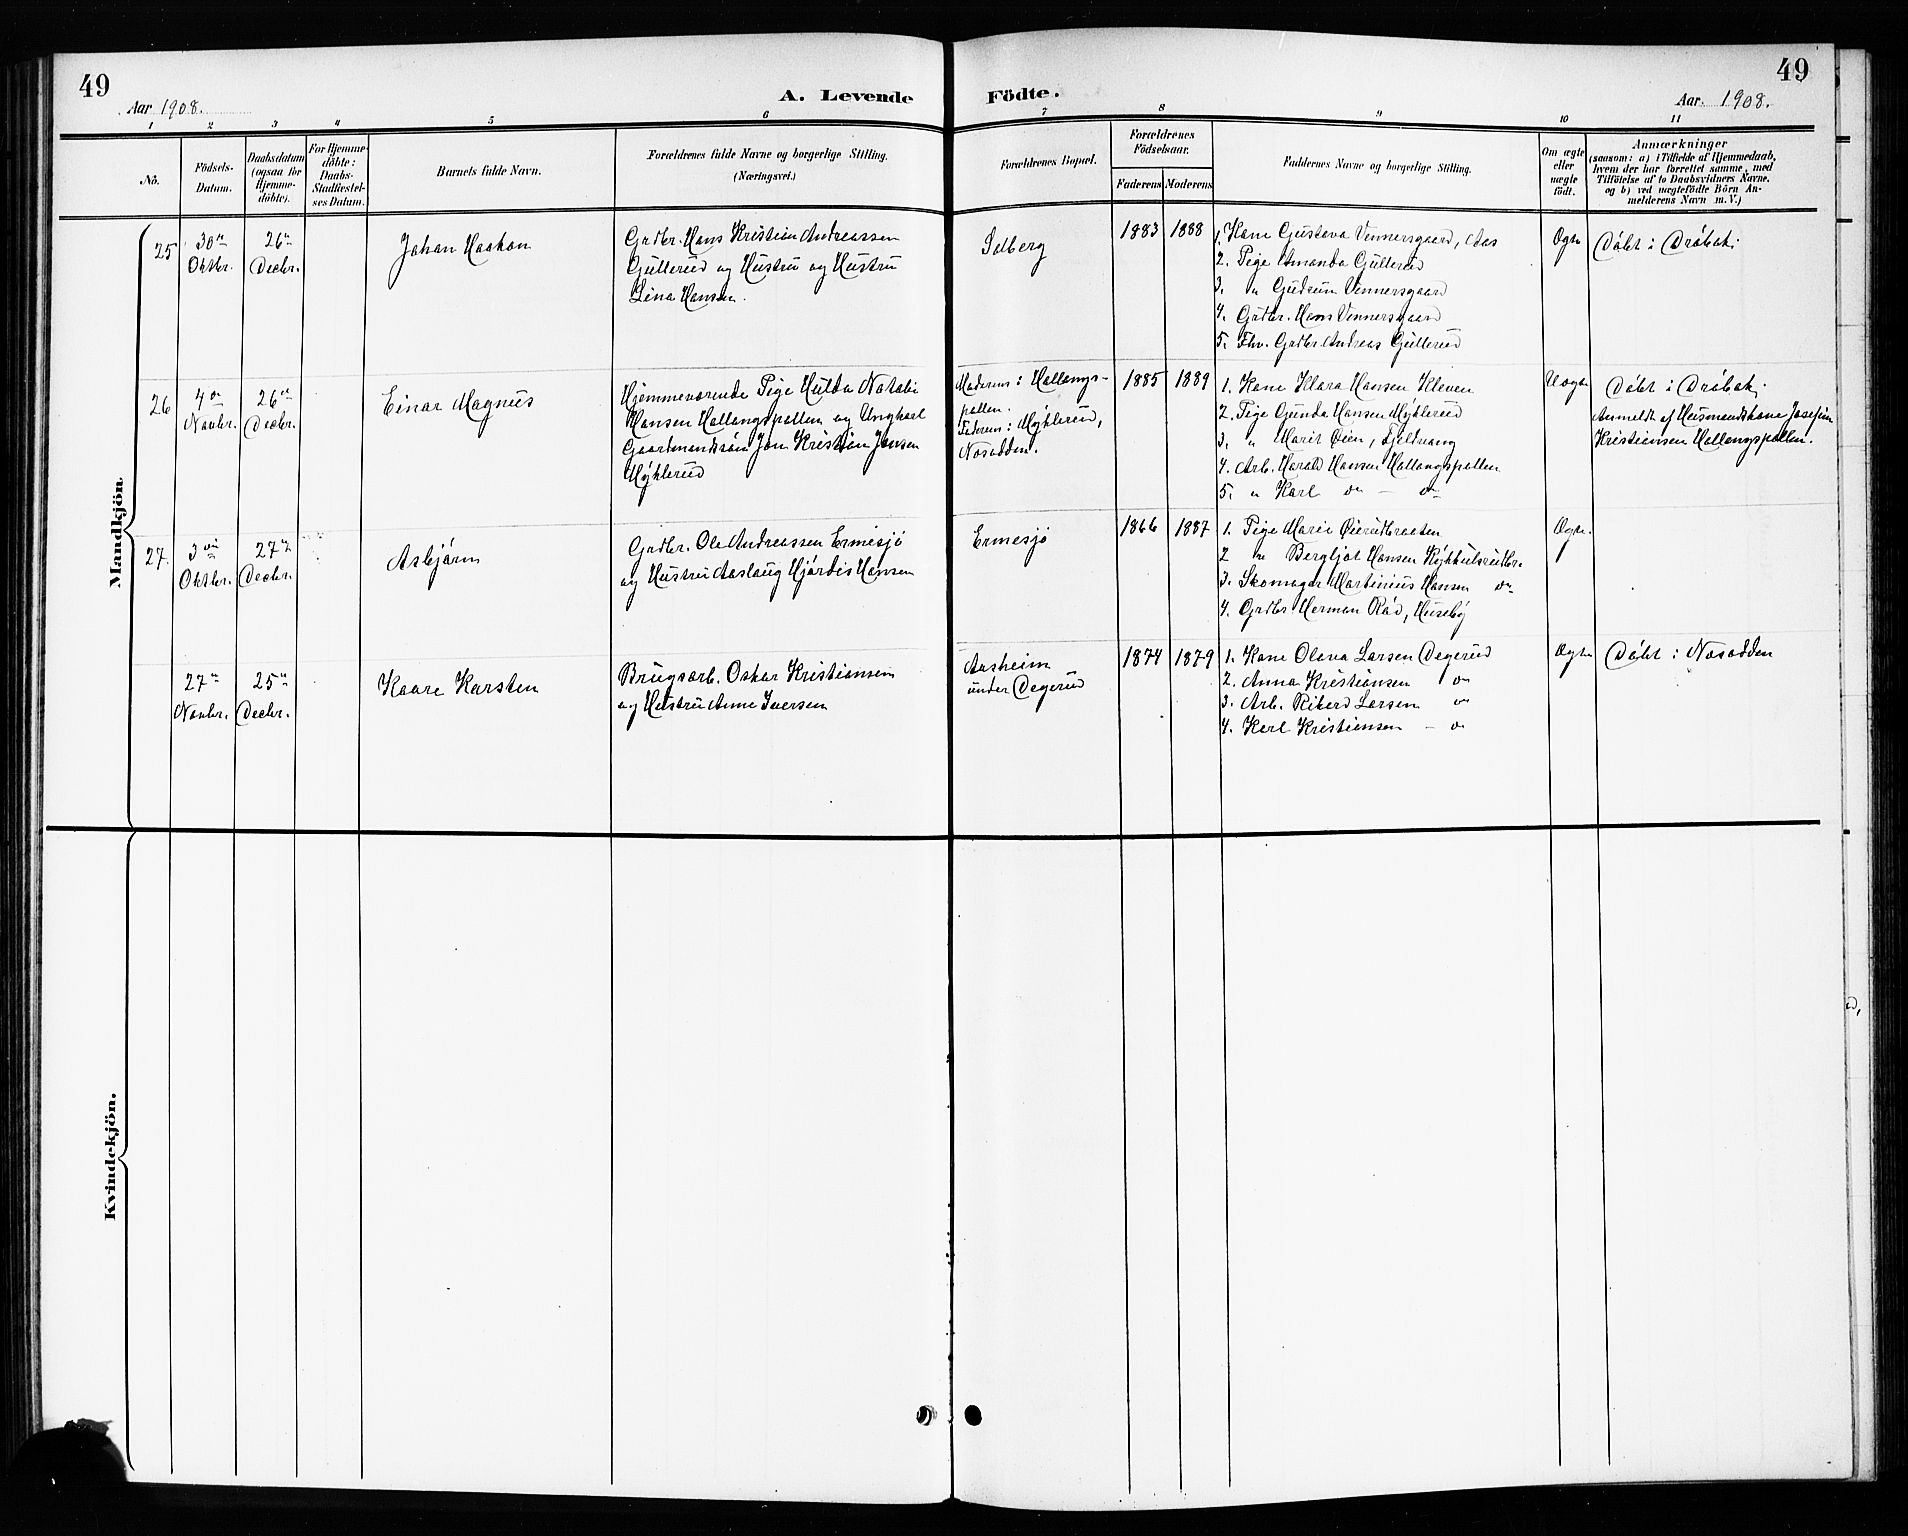 49
Aar 1908.
A. Levende
Födte.
49
Aar 1908.
1 2 3 4 5 6 7 8 9 10 11
Nô.
Födsels-
Datum.
Daabsdatum
(ogsaa for
Hjemme-
döbte).
For Hjemme-
döbte:
Daabs-
Stadfæstel-
ses Datum.
Barnets fulde Navn.
Forældrenes fulde Navne og borgerlige Stilling.
(Næringsvei.)
Forældrenes Bopæl.
Forældrenes
Födselsaar.
Faderens Moderens
Faddernes Navne og borgerlige Stilling.
Om ægte
eller
uægte
födt.
Anmærkninger
(saasom: a) i Tilfælde af Hjemmedaab,
hvem der har forrettet samme, med
Tilföielse af to Daabsvidners Navne,
og b) ved uægtefödte Börn An-
melderens Navn m. V.)
Mandkjön.
25
30te
Oktbr.
26de
Decbr.
Johan Haakon
Grdbr. Hans Kristian Andreassen
Gullerud og Hustru og Hustru
Lina Hansen.
Solberg
1883 1888
1. Kone Gustava Vennersgaard, Aas
2. Pige Amanda Gullerud
3. " Gudrun Vennersgaard
4. Grdbr. Hans Vennersgaard
5. Fhv. Grdbr. Andreas Gullerud
Ægte
Döbt i Dröbak.
26
4de
Novbr.
26de
Decbr.
Einar Magnus
Hjemmeværende Pige Hulda Natali
Hansen Hallangspollen og Ungkarl
Gaardmandssön Jon Kristian Jensen
Myklerud
Moderens: Hallangs-
pollen.
Faderens: Myklerud,
Nesodden.
1885 1889
1. Kone Klara Hansen Kleven
2. Pige Gunda Hansen Myklerud
3. " Marit Öien, Fjeldvang
4. Arb. Harald Hansen Hallangspollen
5. " Karl do - do
Uægte
Döbt i Dröbak.
Anmeldt af Husmandskone Josefine
Kristiansen Hallangspollen.
27.
3die
Oktbr.
27de
Decbr.
Asbjörn
Grdbr. Ole Andreassen Ermesjö
og Hustru Aaslaug Hjördis Hansen
Ermesjö
1866 1887
1. Pige Marie Öierudbraaten
2 " Bergljot Hansen Kykkulsrudbr.
3. Skomager Martinius Hansen do
4. Grdbr Herman Röd, Huseby
Ægte.
27de
Novbr.
25de
Decbr.
Kaare Karsten
Brugsarb. Oskar Kristiansen
og Hustru Anne Iversen
Aasheim
under Degerud
1874 1879
1. Kone Olava Larsen Degerud
2. Anna Kristiansen do
3. Arb. Rikard Larsen do
4. Karl Kristiansen - do
Ægte
Döbt i Nesodden
Kvindekjön.